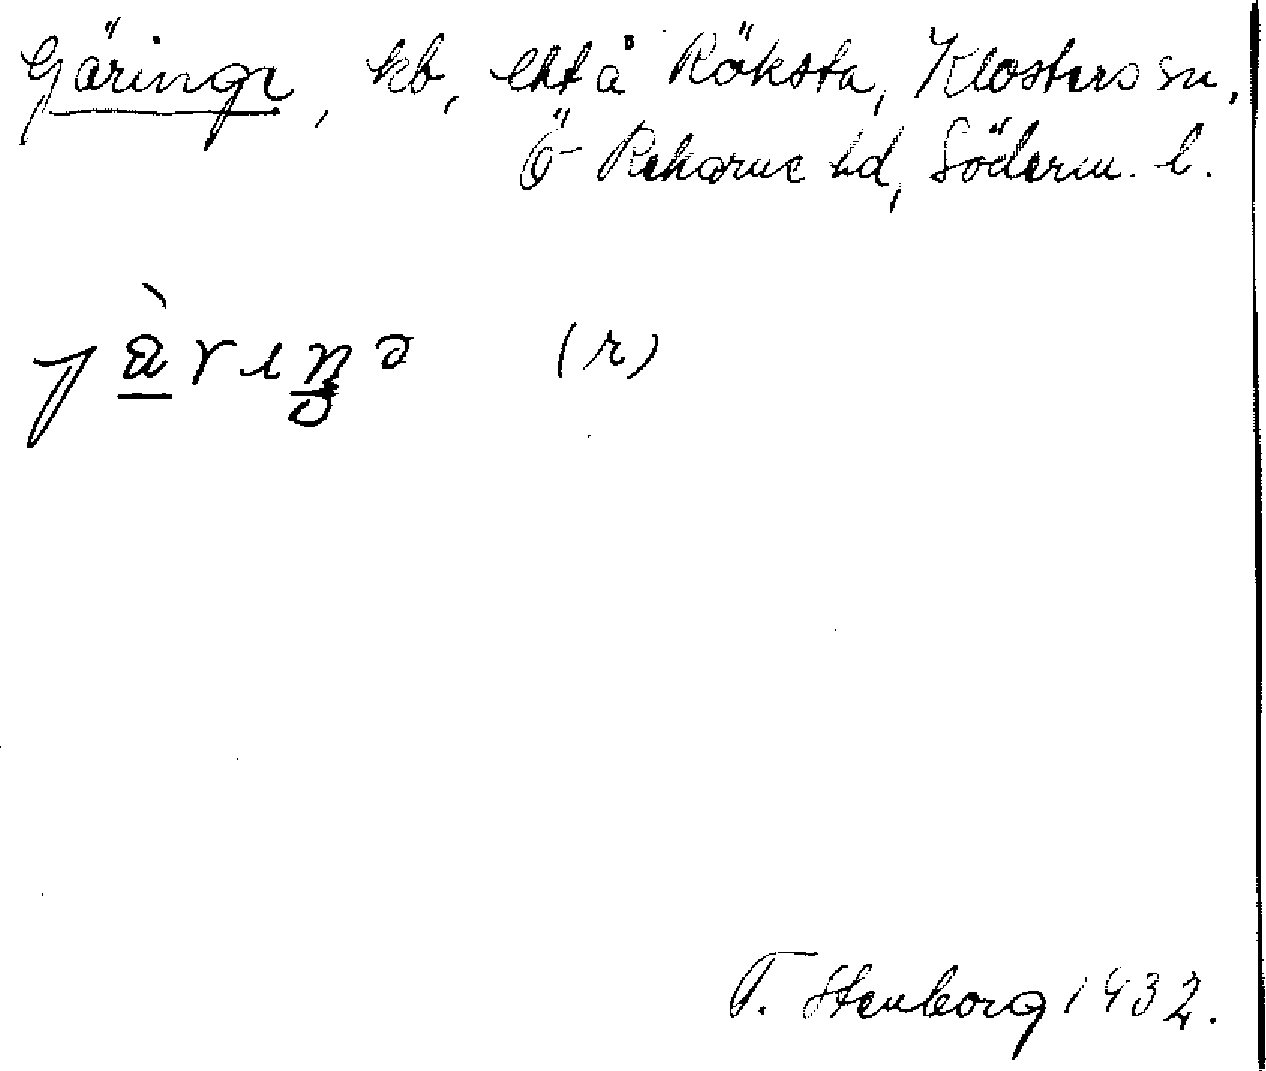 Gäringe, kb, lht å Röksta, Klosters sn,
Ö Rekarne hd, Söderm. l.
(r)
T. Stenborg 1932.